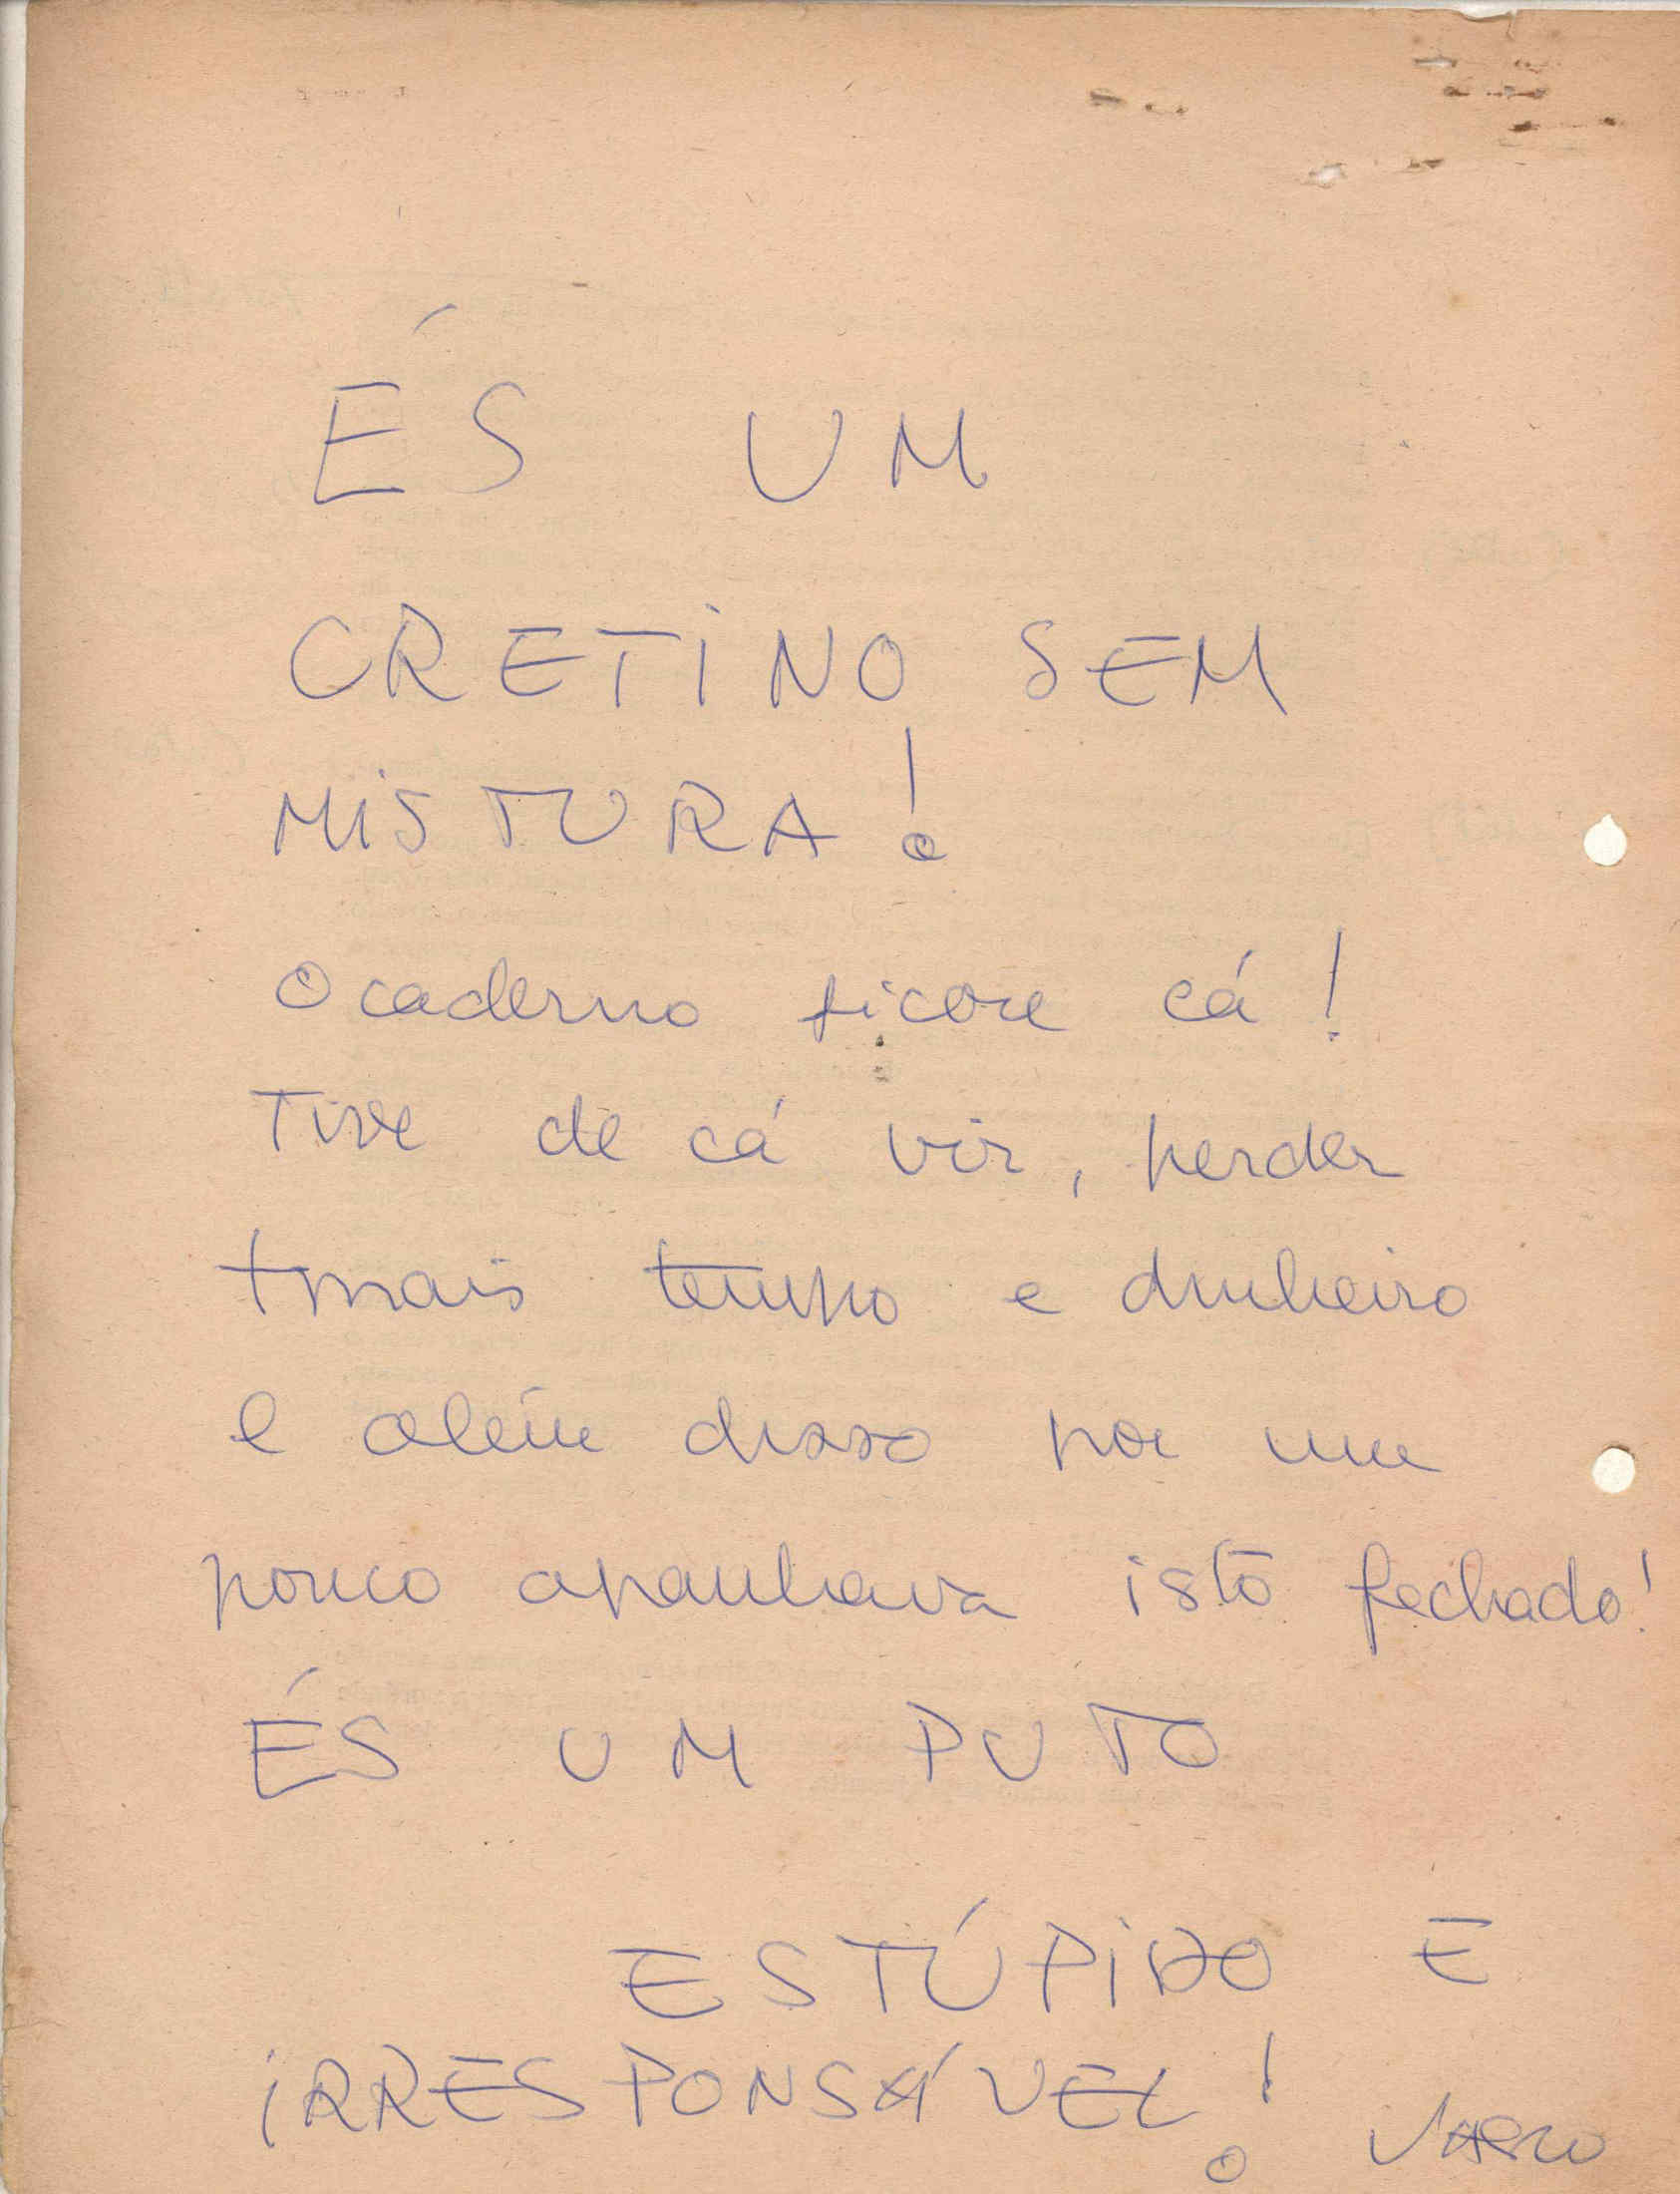 ÉS UM
CRETINO SEM
MISTURA!
O caderno ficou cá!
Tive de cá vir, perder
+ mais tempo e dinheiro
e além disso por um
pouco apanhava isto fechado!
ÉS UM PUTO
ESTÚPIDO E
IRRESPONSÁVEL!
Vasco